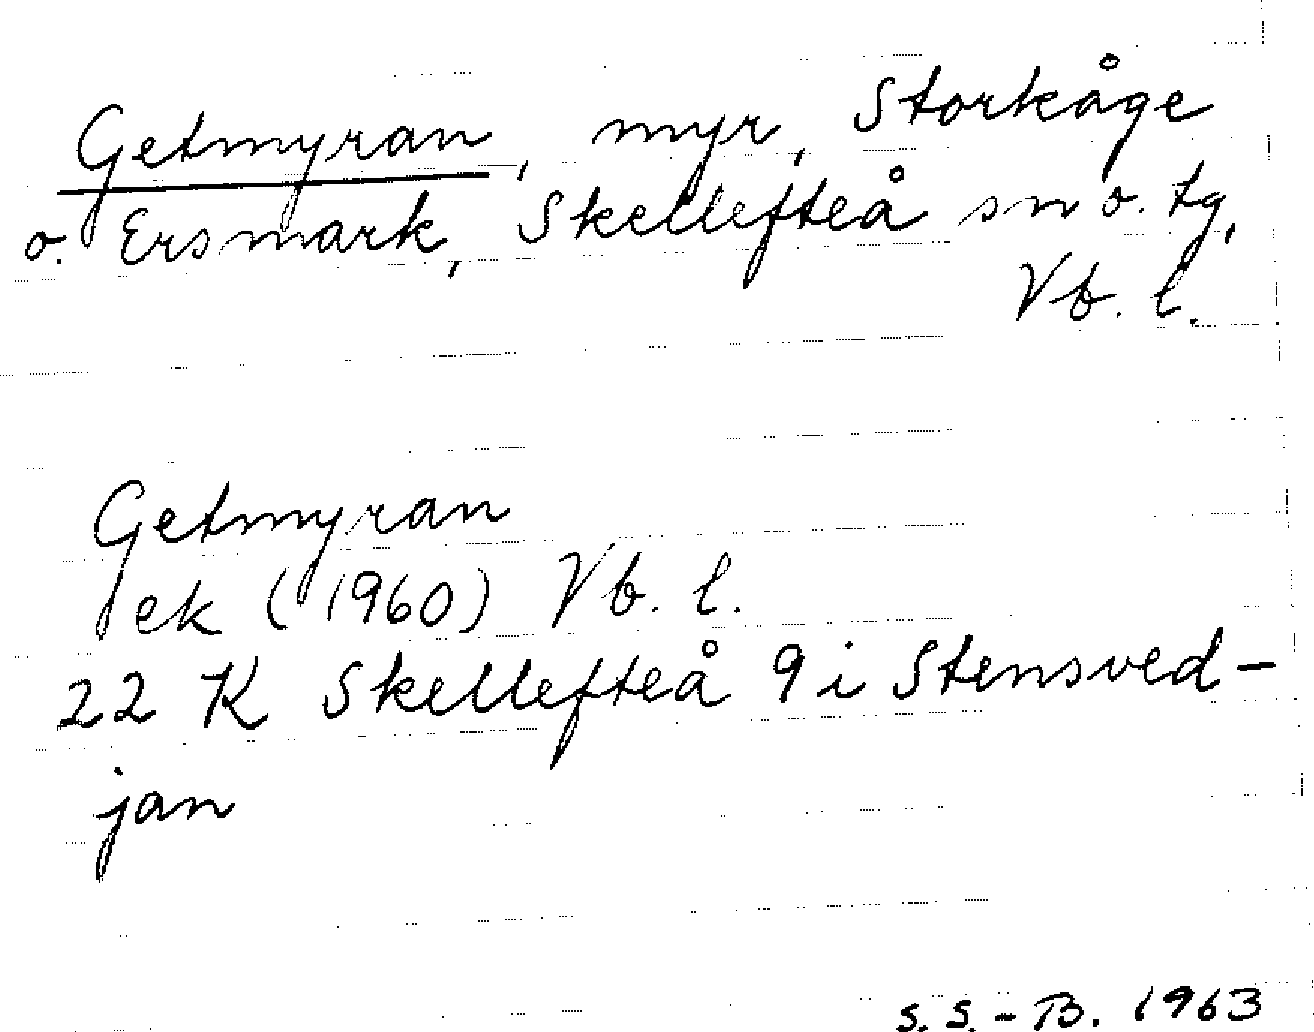 Getmyran, myr, Storkåge
o. Ersmark, Skellefteå sn o. tg,
Vb. l.
Getmyran
ek (1960) Vb. l.
22 K Skellefteå 9 i Stensved-
jan
S. S.-B. 1963